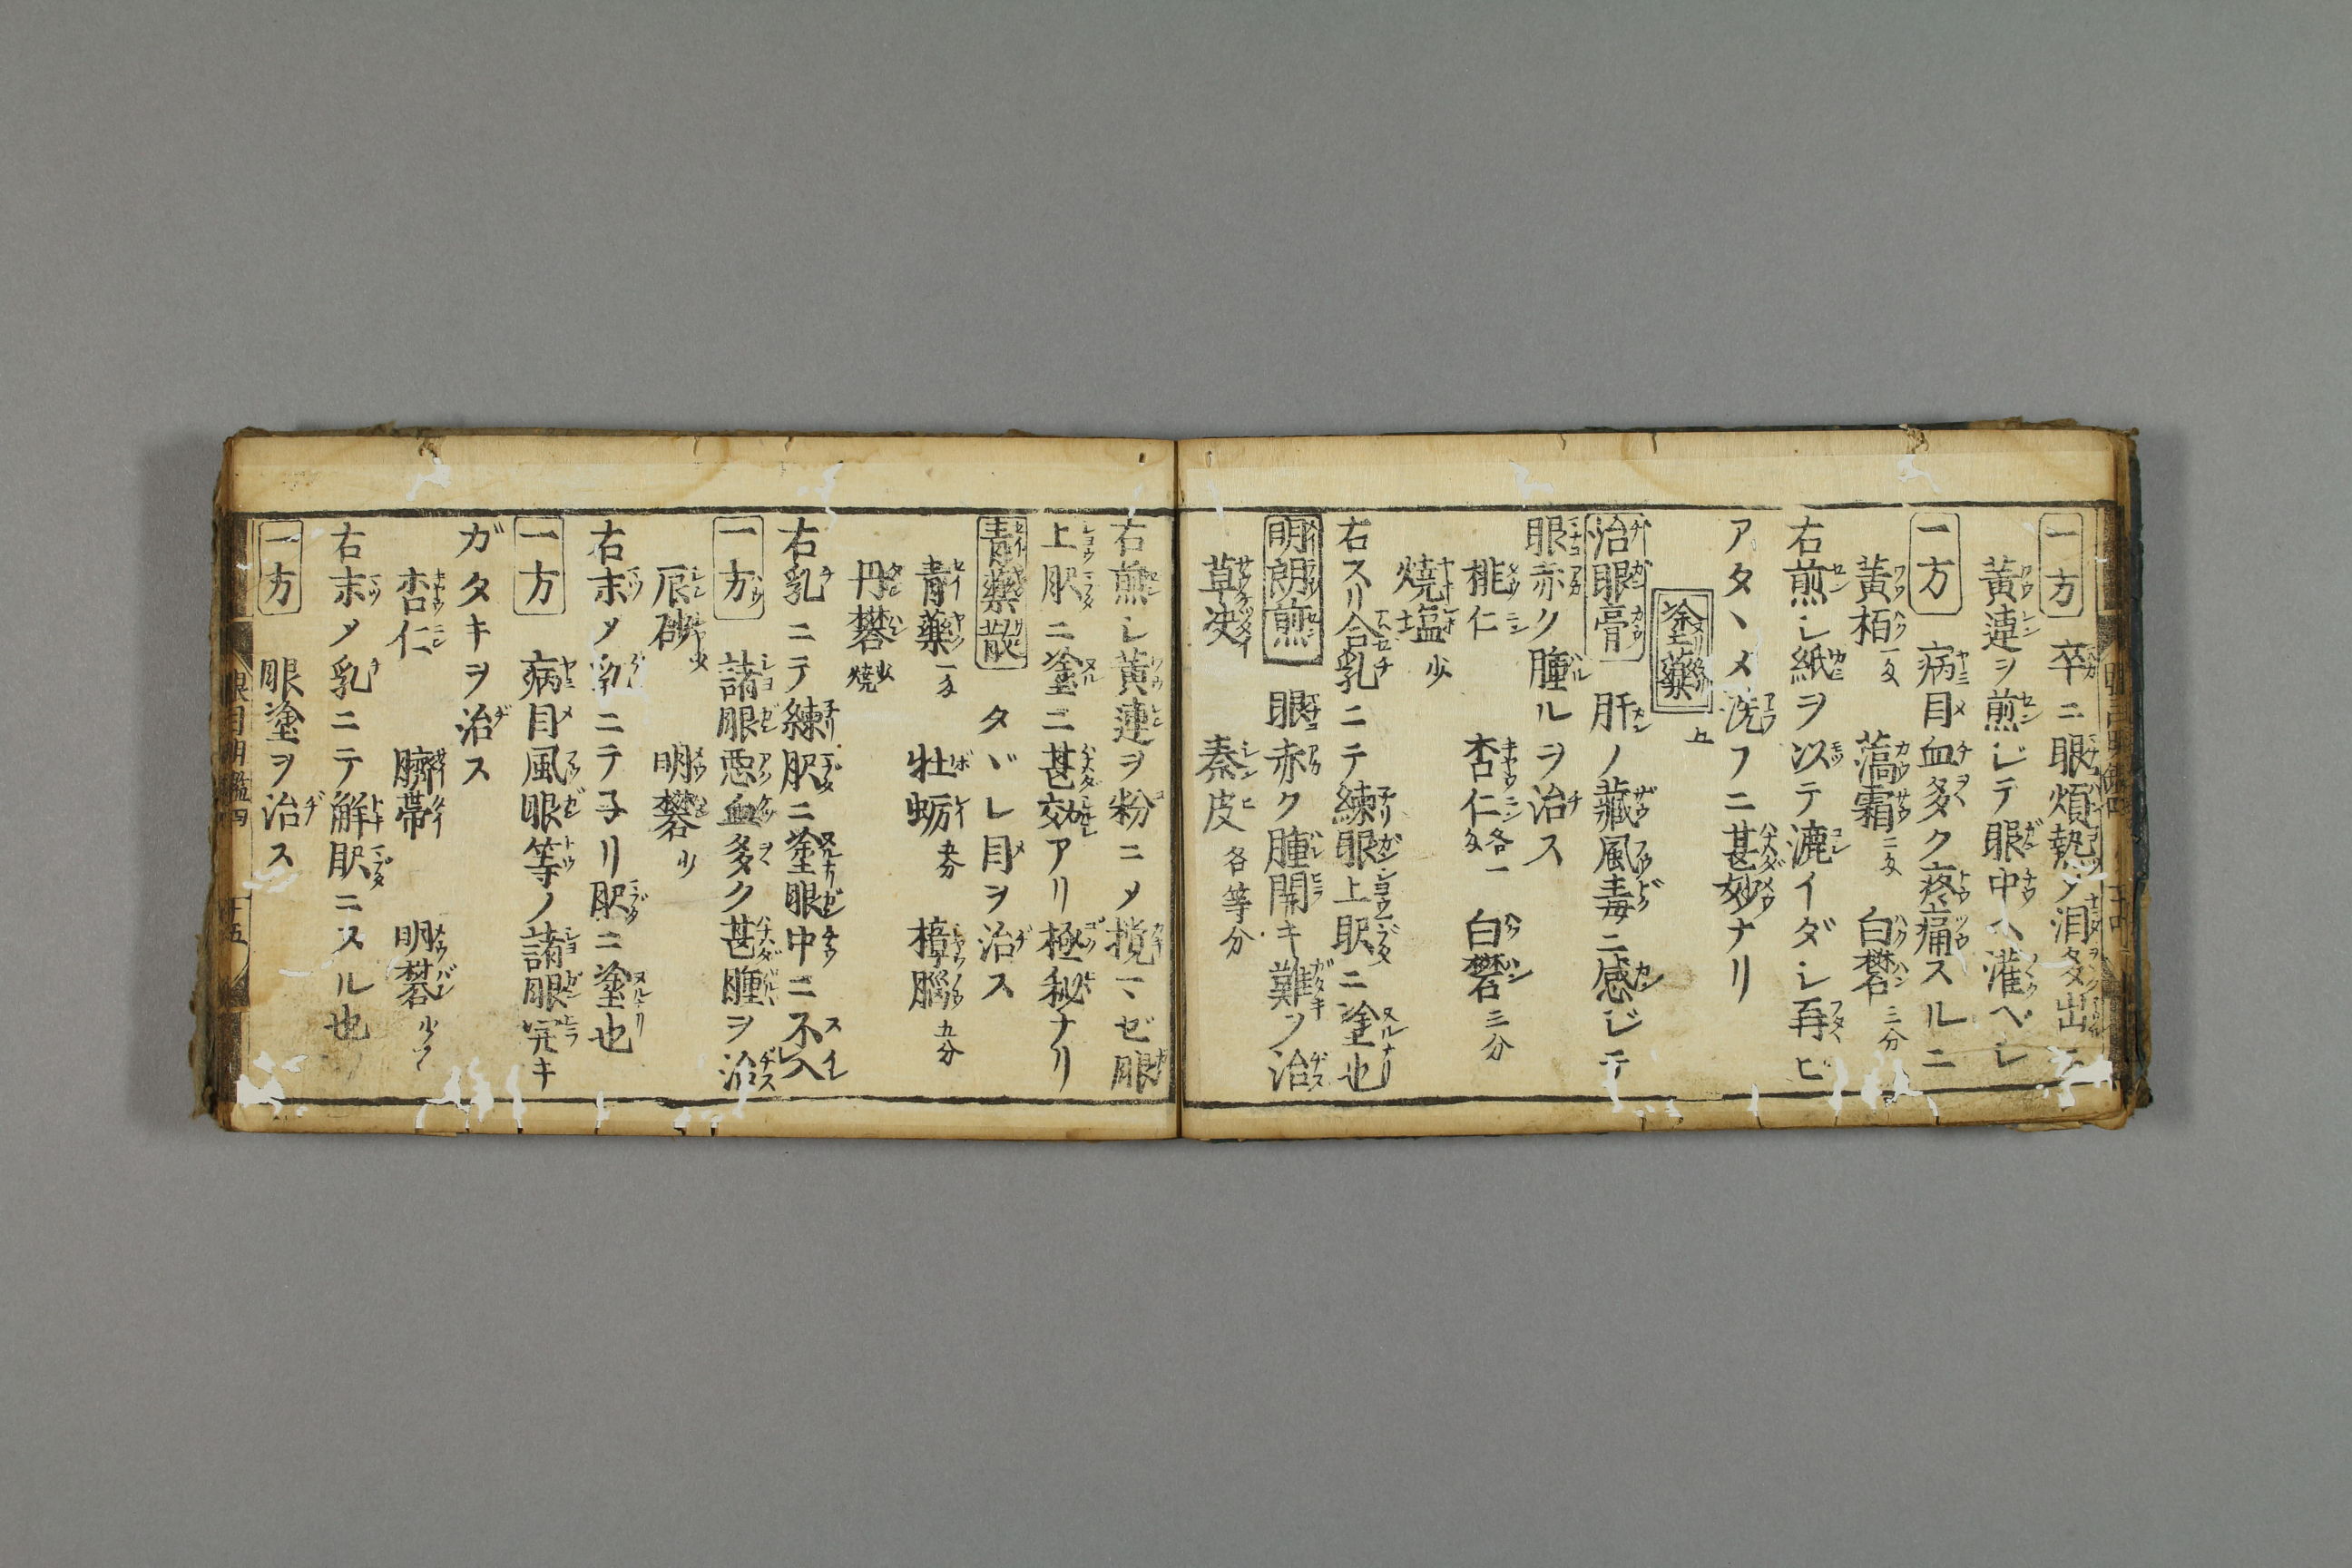 一方 卒ニ眼煩熱ノ泪多出ニ
黄連ヲ煎ジテ眼中ヘ灌ベシ
一方 病目血多ク疼痛スルニ
黄栢 一匁 藁霜 二匁 白礬 三分
右煎シ紙ヲ以テ漉イダシ再ビ
アタヽメ洗フニ甚妙ナリ
塗藥 上
治眼膏 肝ノ藏風毒ニ感ジテ
眼赤ク腫ルヲ治ス
桃仁 杏仁 各一匁 白礬 三分
燒塩 少
右スリ合乳ニテ練眼上眍ニ塗也
明朗煎 眼赤ク腫開キ難ヲ治
草决 秦皮 各等分
右煎シ黄連ヲ粉ニメ攪マゼ眼
上眍ニ塗ニ甚効アリ極秘ナリ
青藥散 タヾレ目ヲ治ス
青藥 一匁 牡蛎 五分 樟腦 五分
丹礬 少燒
右乳ニテ練眍ニ塗眼中ニ不入
一方 諸眼悪血多ク甚腫ヲ治
辰砂 少 明礬 少
右末メ乳ニテ子リ眍ニ塗也
一方 病目風眼等ノ諸眼完キ
ガタキヲ治ス
杏仁 臍帯 明礬 少ツヽ
右末メ乳ニテ解眍ニスル也
一方 眼塗ヲ治ス
眼目明鑑四 十五